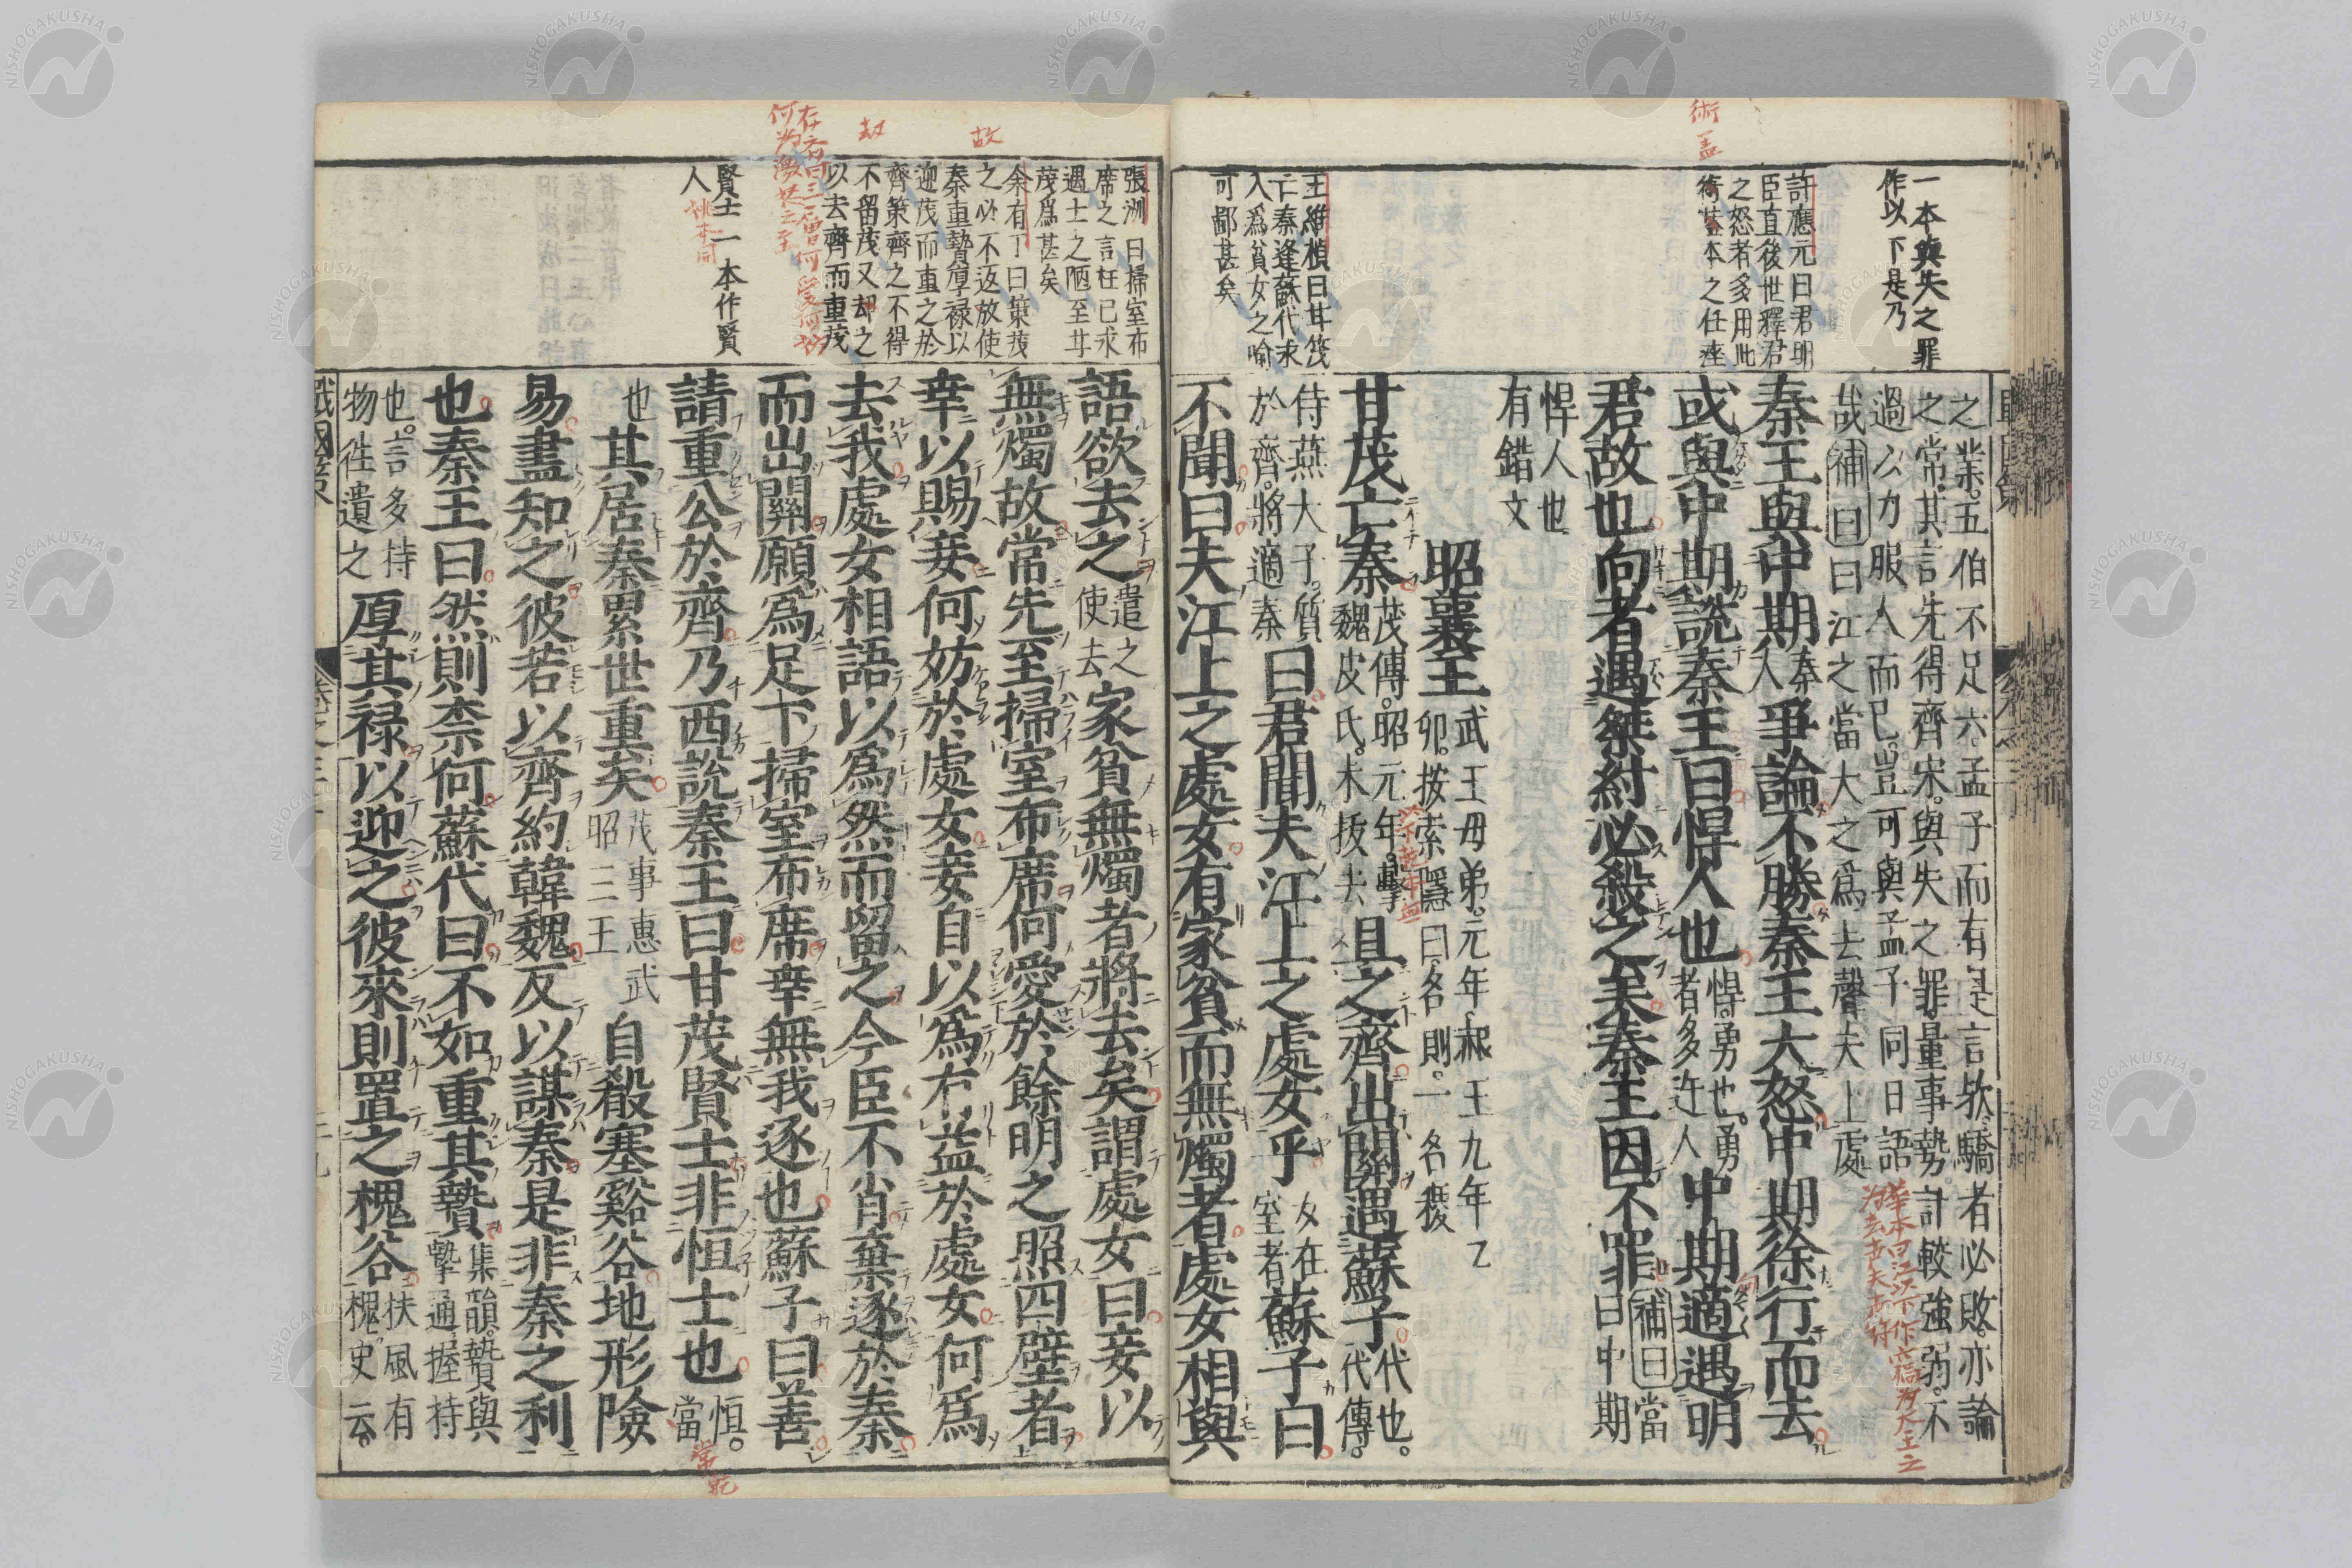 一本與失之罪
作以下是乃
許應元曰君明
臣直後世釋君
之怒者多用此
術蓋
王維楨曰甘茂
亡秦逢蘇代求
入爲貧女之喻
可鄙甚矣
之業。五伯不足六。孟子而有是言歟。驕者必敗。亦論
之常。其言先得齊宋。與失之罪量事勢。計較強弱。不
過以力服人而已。豈可與孟子同日語
哉補曰曰江之當大之爲去聲夫上處
秦王與中期
秦
人
爭論不勝秦王大怒中期徐行而去
或與中期說秦王曰悍人也
悍。勇也。勇
者多迕人
中期適遇明
君故也向者遇桀紂必殺之矣秦王因不罪
補曰當
曰中期
悍人也
有錯文
昭襄王
武王母弟。元年。赧王九年乙
卯。按索隱曰。名則。一名稷
甘茂亡秦
茂傳。昭元年。擊
魏皮氏。未拔去
且之齊出關遇蘇子
代也。
代傳。
侍燕太子。質
於齊。將適秦
曰君聞夫江上之處女乎
女在
室者
蘇子曰
不聞曰夫江上之處女有家貧而無燭者處女相與
張洲曰掃室布
席之言枉己求
遇士之陋至甘
茂爲甚矣
余有丁曰策茂
之必不返放使
秦重贄厚祿以
迎茂而重之於
齊策齊之不得
不留茂又却之
以去齊而重茂
故
刼
賢士一本作賢
人
姚本同
語欲去之
遣之
使去
家貧無燭者將去矣謂處女曰妾以
無燭故常先至掃室布席何愛於餘明之照四壁者
幸以賜妾何妨於處女妾自以爲有益於處女何爲
去我處女相語以爲然而留之今臣不肖棄逐於秦
而出關願爲足下掃室布席幸無我逐也蘇子曰善
請重公於齊乃西說秦王曰甘茂賢士非恒士也
恒。
當
常乾
也
其居秦累世重矣
茂事惠武
昭三王
自殽塞谿谷地形險
易盡知之彼若以齊約韓魏反以謀秦是非秦之利
也秦王曰然則柰何蘇代曰不如重其贄
集韻。贄與
摯通。握持
也。言多持
物往遺之
厚其祿以迎之彼來則置之槐谷
扶風有
槐。史云。
戰國策